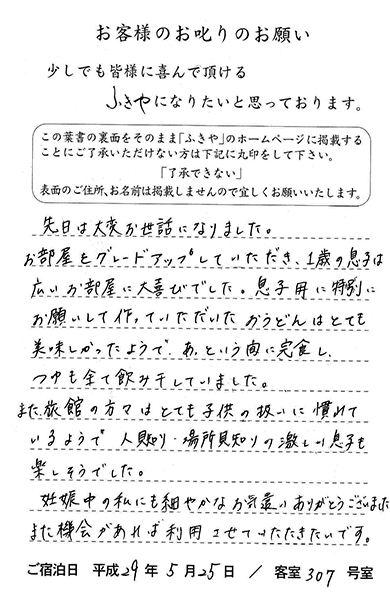 お客様のお叱りのお願い
少しでも皆様に喜んで頂ける
ふきやになりたいと思っております。
この葉書の裏面をそのまま「ふきや」のホームページに掲載する
ことにご了承いただけない方は下記に丸印をして下さい。
「了承できない」
表面のご住所、お名前は掲載しませんので宜しくお願いいたします。
先日は大変お世話になりました。
お部屋をグレードアップしていただき、1歳の息子は
広いお部屋に大喜びでした。息子用に特別に
お願いして作っていただいたおうどんはとても
美味しかったようで、あっという間に完食し、
つゆも全て飲み干していました。
また、旅館の方々はとても子供の扱いに慣れて
いるようで人見知り・場所見知りの激しい息子も
楽しそうでした。
妊娠中の私にも細やかなお気遣いありがとうございました
また機会があれば利用させていただきたいです。
ご宿泊日 平成29年5月25日 / 客室307号室